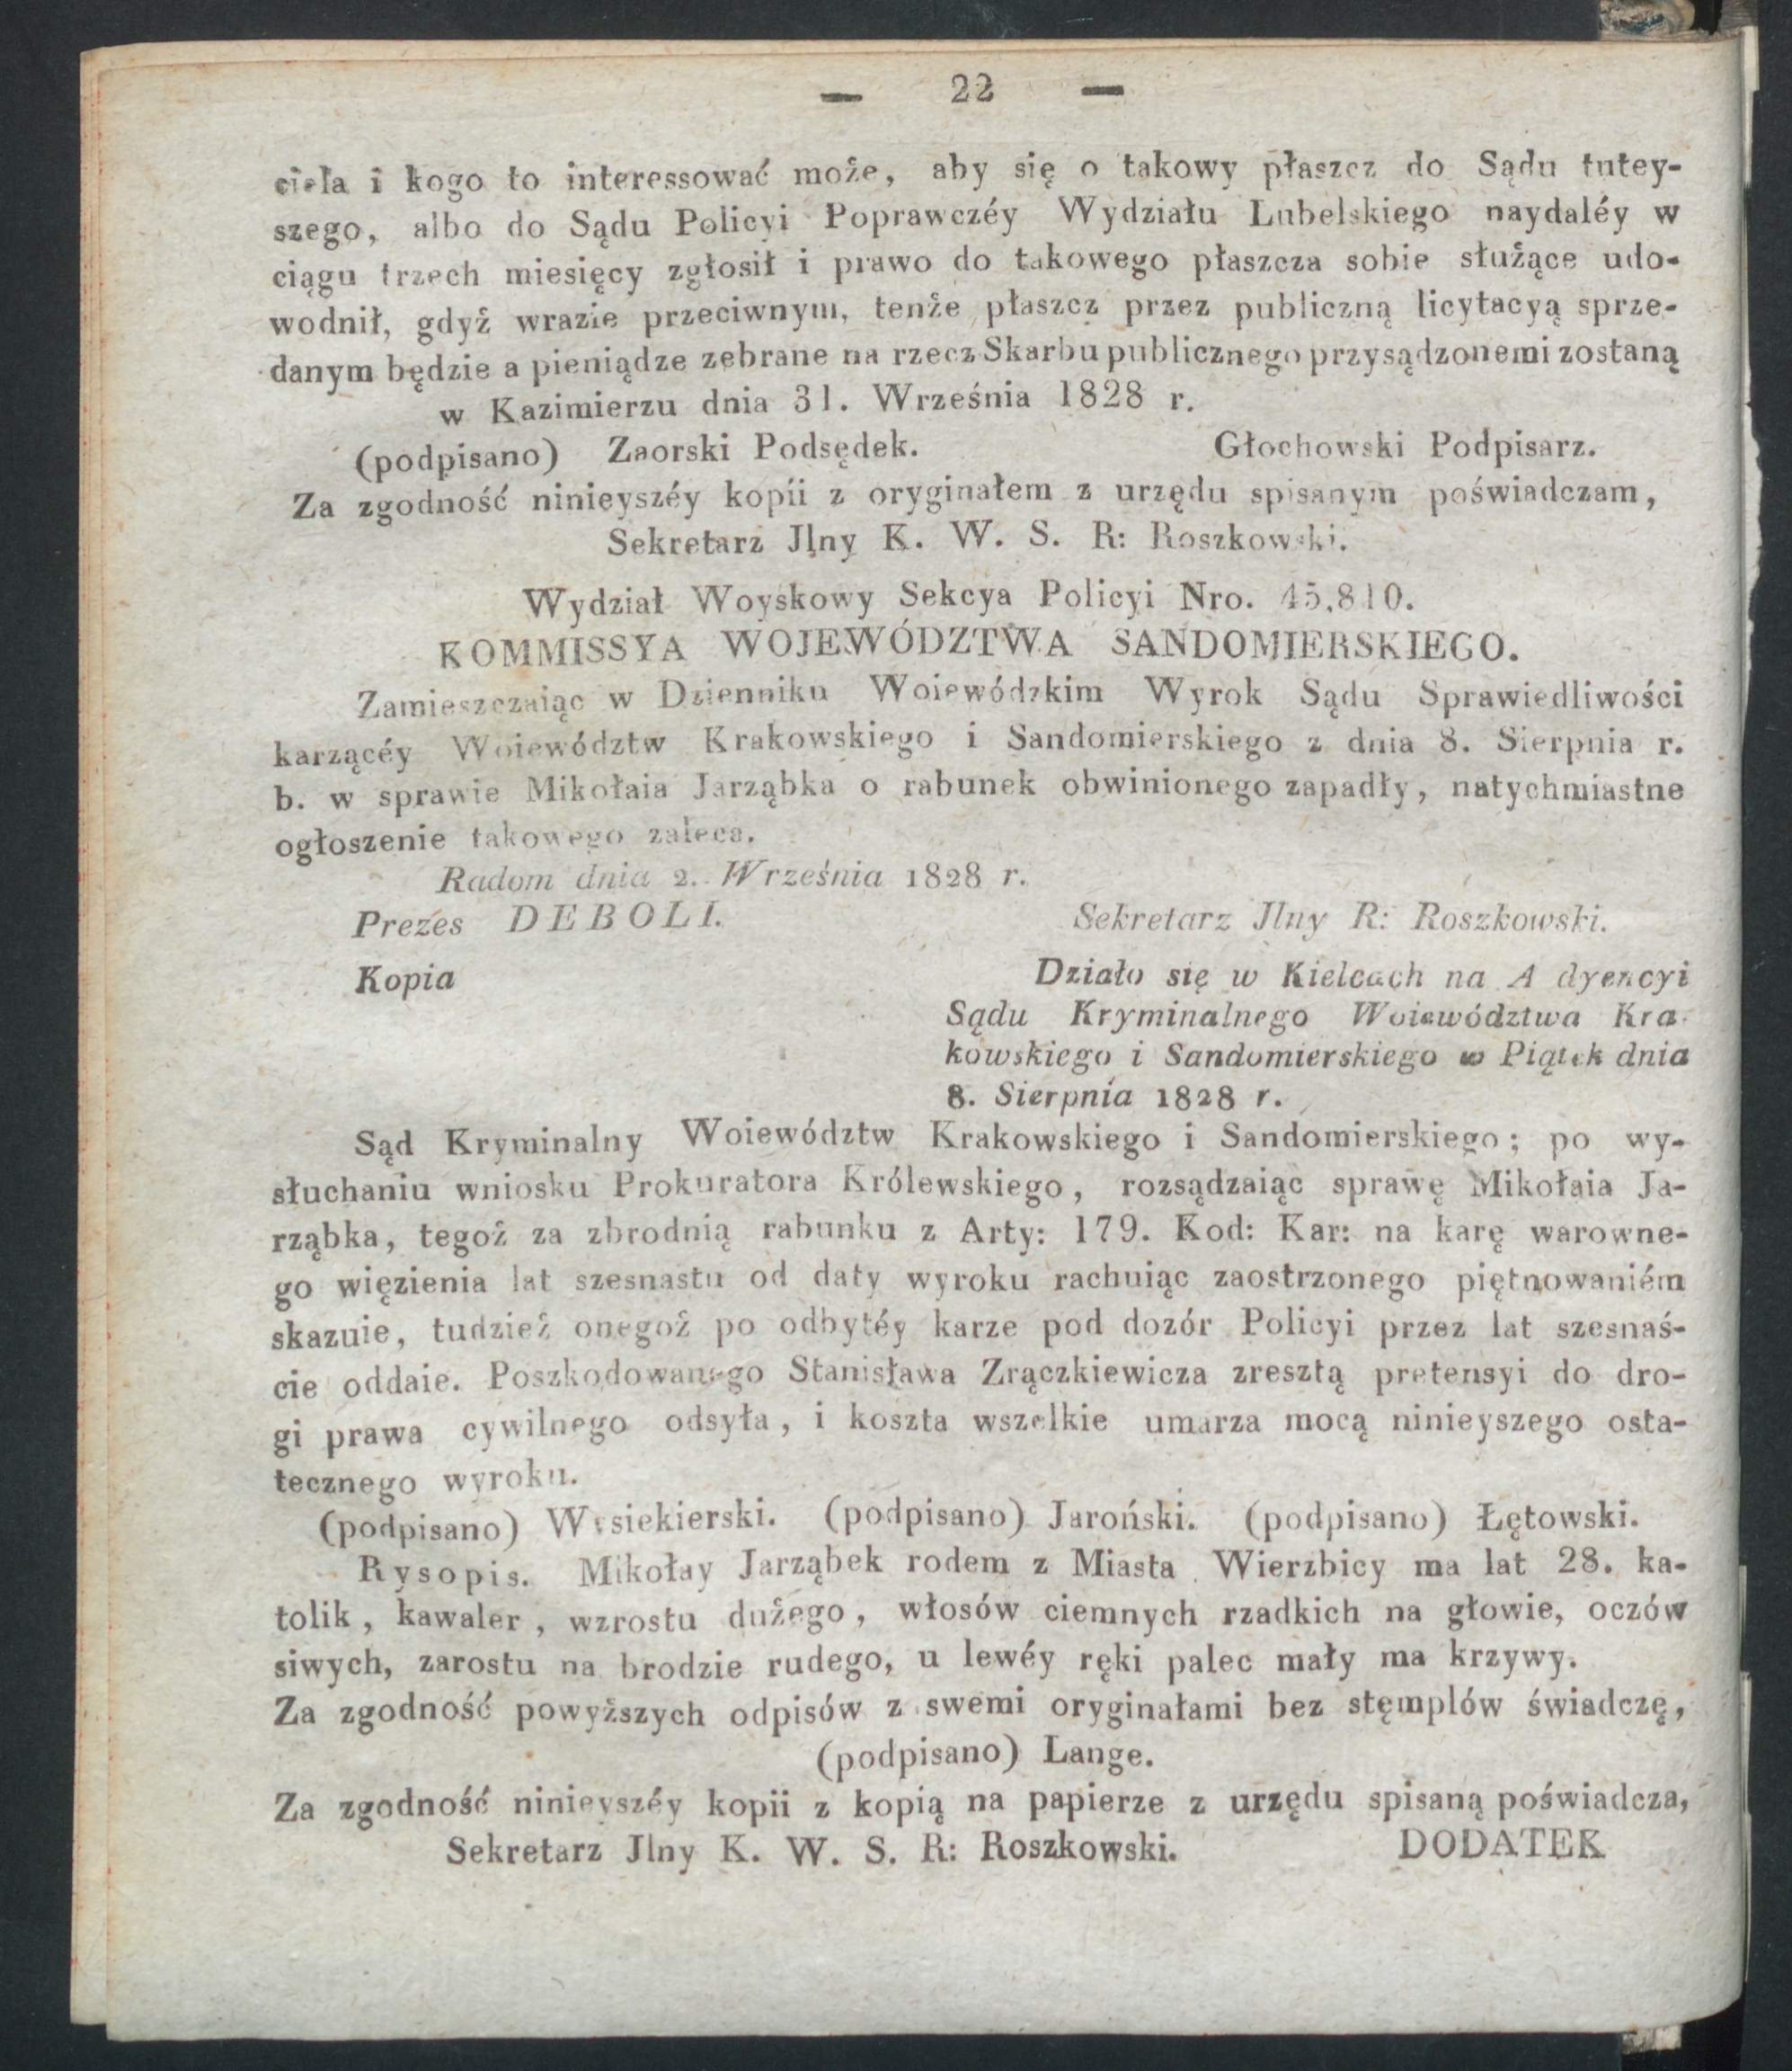 — 22 —
ciela i kogo to interessować może, aby się o takowy płaszcz do Sądu tutey-
szego, albo do Sądu Policyi Poprawczéy Wydziału Lubelskiego naydaléy w
ciągu trzech miesięcy zgłosił i prawo do takowego płaszcza sobie służące udo-
wodnił, gdyż wrazie przeciwnym, tenże płaszcz przez publiczną licytacyą sprze-
danym będzie a pieniądze zebrane na rzecz Skarbu publicznego przysądzonemi zostaną
w Kazimierzu dnia 31. Września 1828 r.
(podpisano) Zaorski Podsędek. Głochowski Podpisarz.
Za zgodność ninieyszéy kopii z oryginałem z urzędu spisanym poświadczam,
Sekretarz Jlny K. W. S. R: Roszkowski.
Wydział Woyskowy Sekcya Policyi Nro. 45,810.
KOMMISSYA WOJEWÓDZTWA SANDOMIERSKIEGO.
Zamieszczaiąc w Dzienniku Woiewódzkim Wyrok Sądu Sprawiedliwości
karzącéy Woiewództw Krakowskiego i Sandomierskiego z dnia 8. Sierpnia r.
b. w sprawie Mikołaia Jarząbka o rabunek obwinionego zapadły, natychmiastne
ogłoszenie takowego zaleca.
Radom dnia 2. Września 1828 r.
Prezes DEBOLI. Sekretarz Jlny R: Roszkowski.
Kopia Działo się w Kielcach na A dyencyi
Sądu Kryminalnego Woiewództwa Kra-
kowskiego i Sandomierskiego w Piątek dnia
8. Sierpnia 1828 r.
Sąd Kryminalny Woiewództw Krakowskiego i Sandomierskiego; po wy-
słuchaniu wniosku Prokuratora Królewskiego, rozsądzaiąc sprawę Mikołaia Ja-
rząbka, tegoż za zbrodnią rabunku z Arty: 179. Kod: Kar: na karę warowne-
go więzienia lat szesnastu od daty wyroku rachuiąc zaostrzonego piętnowaniém
skazuie, tudzież onegoż po odbytéy karze pod dozór Policyi przez lat szesnaś-
cie oddaie. Poszkodowanego Stanisława Zrączkiewicza zresztą pretensyi do dro-
gi prawa cywilnego odsyła, i koszta wszelkie umarza mocą ninieyszego osta-
tecznego wyroku.
(podpisano) Wysiekierski. (podpisano) Jaroński. (podpisano) Łętowski.
Rysopis. Mikołay Jarząbek rodem z Miasta Wierzbicy ma lat 28. ka-
tolik, kawaler, wzrostu dużego, włosów ciemnych rzadkich na głowie, oczów
siwych, zarostu na brodzie rudego, u lewéy ręki palec mały ma krzywy.
Za zgodność powyższych odpisów z swemi oryginałami bez stęmplów świadczę,
(podpisano) Lange.
Za zgodność ninieyszéy kopii z kopią na papierze z urzędu spisaną poświadcza,
Sekretarz Jlny K. W. S. R: Roszkowski. DODATEK